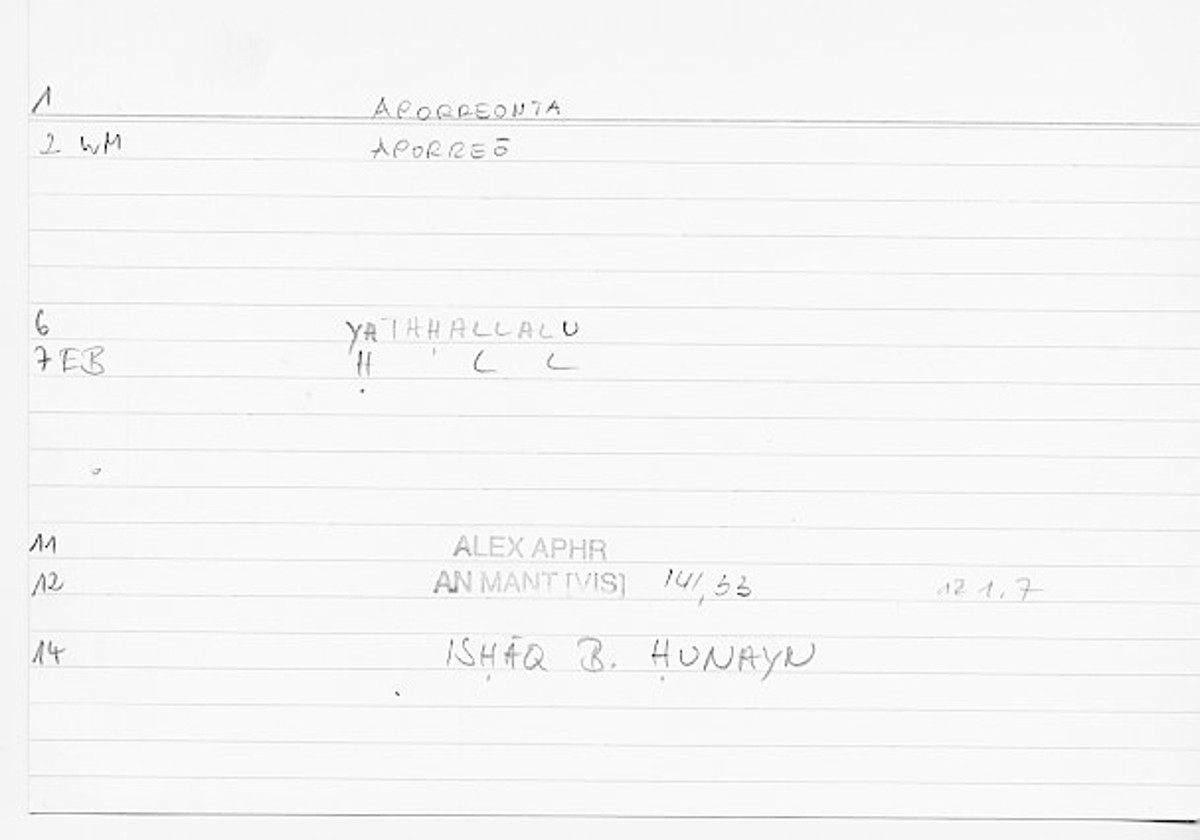 1 APORREONTA
2 WM APORREŌ
6 YATAḤALLALU
7 EB Ḥ L L
11 ALEX APHR
12 AN MANT [VIS] 141,33 121.7
14 ISḤĀQ B. ḤUNAYN